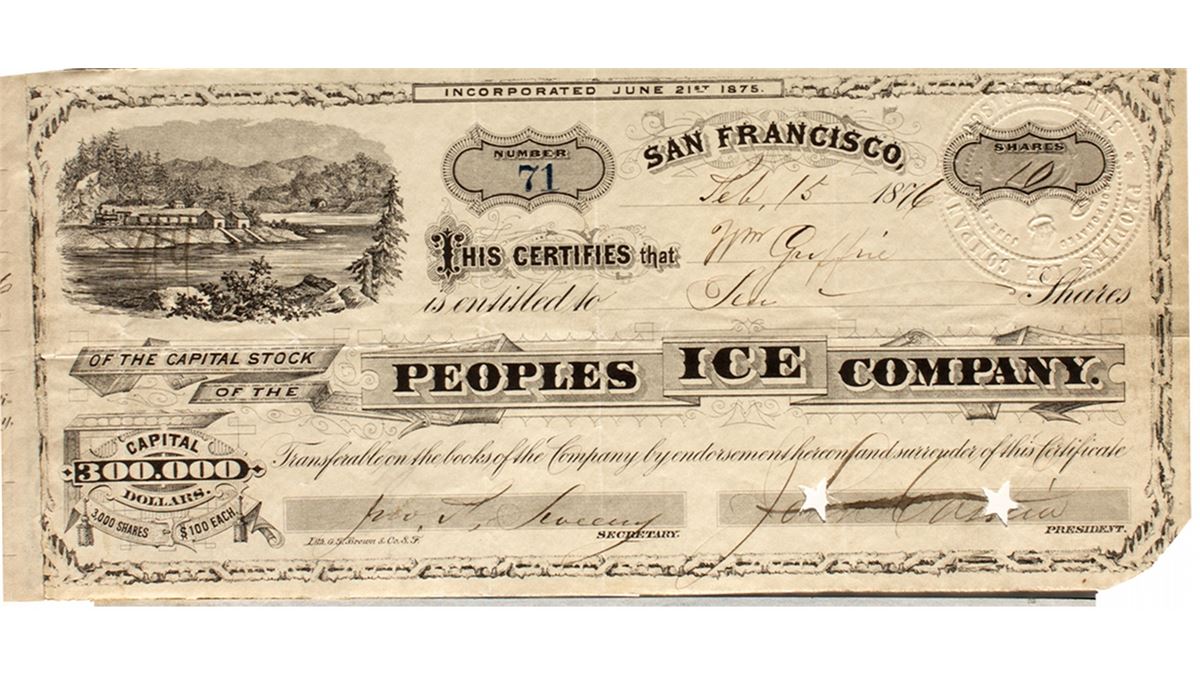 INCORPORATED JUNE 21ST 1875.
NUMBER
71
SAN FRANCISCO,
SHARES
10
Feb, 15 1876
THIS CERTIFIES that Wm Griffin
is entitled to Ten Shares
OF THE CAPITAL STOCK
OF THE
PEOPLES ICE COMPANY.
CAPITAL
300.000
DOLLARS.
3,000 SHARES
$100 EACH.
Transferable on the books of the Company by endorsement hereon and surrender of this Certificate
Jno. T. Sweeny
SECRETARY.
PRESIDENT.
Lith. G.T. Brown & Co. S.F.